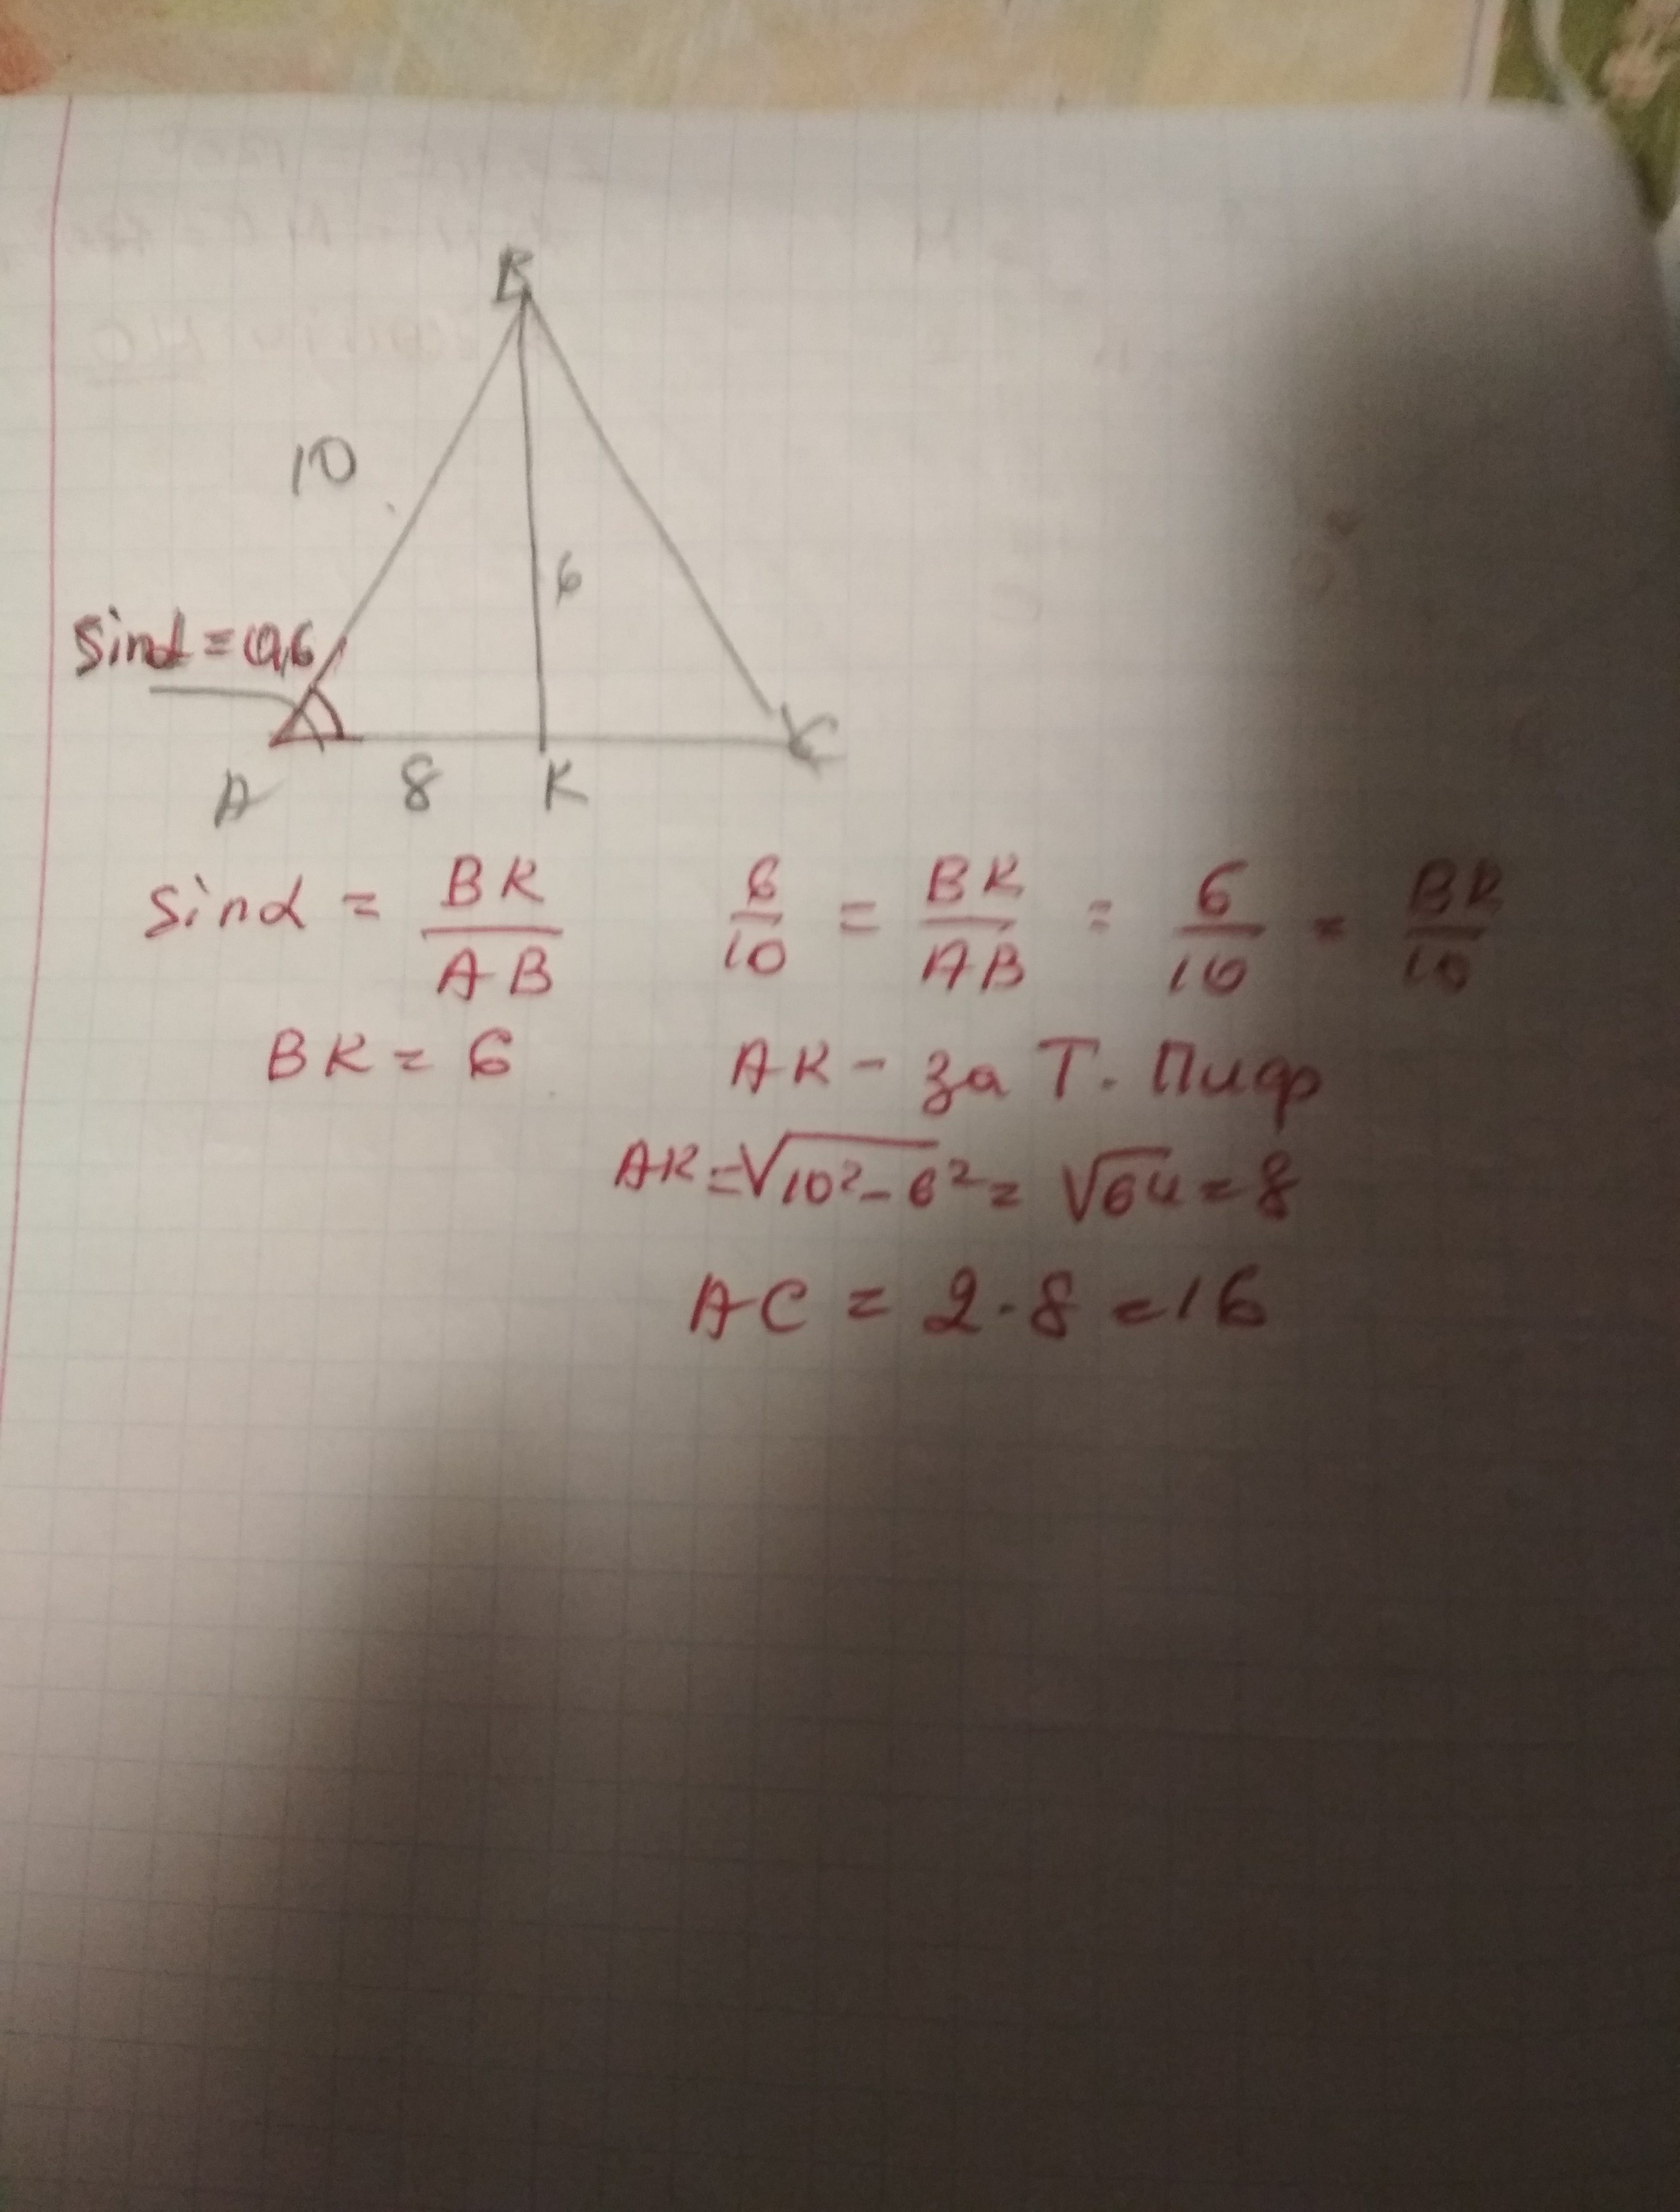 B
10
6
sinα = 0,6
A 8 K C
sinα = BK/AB 6/10 = BK/AB = 6/10 = BK/10
BK = 6 AK - за Т. Пиф
AK = √10² - 6² = √64 = 8
AC = 2 · 8 = 16